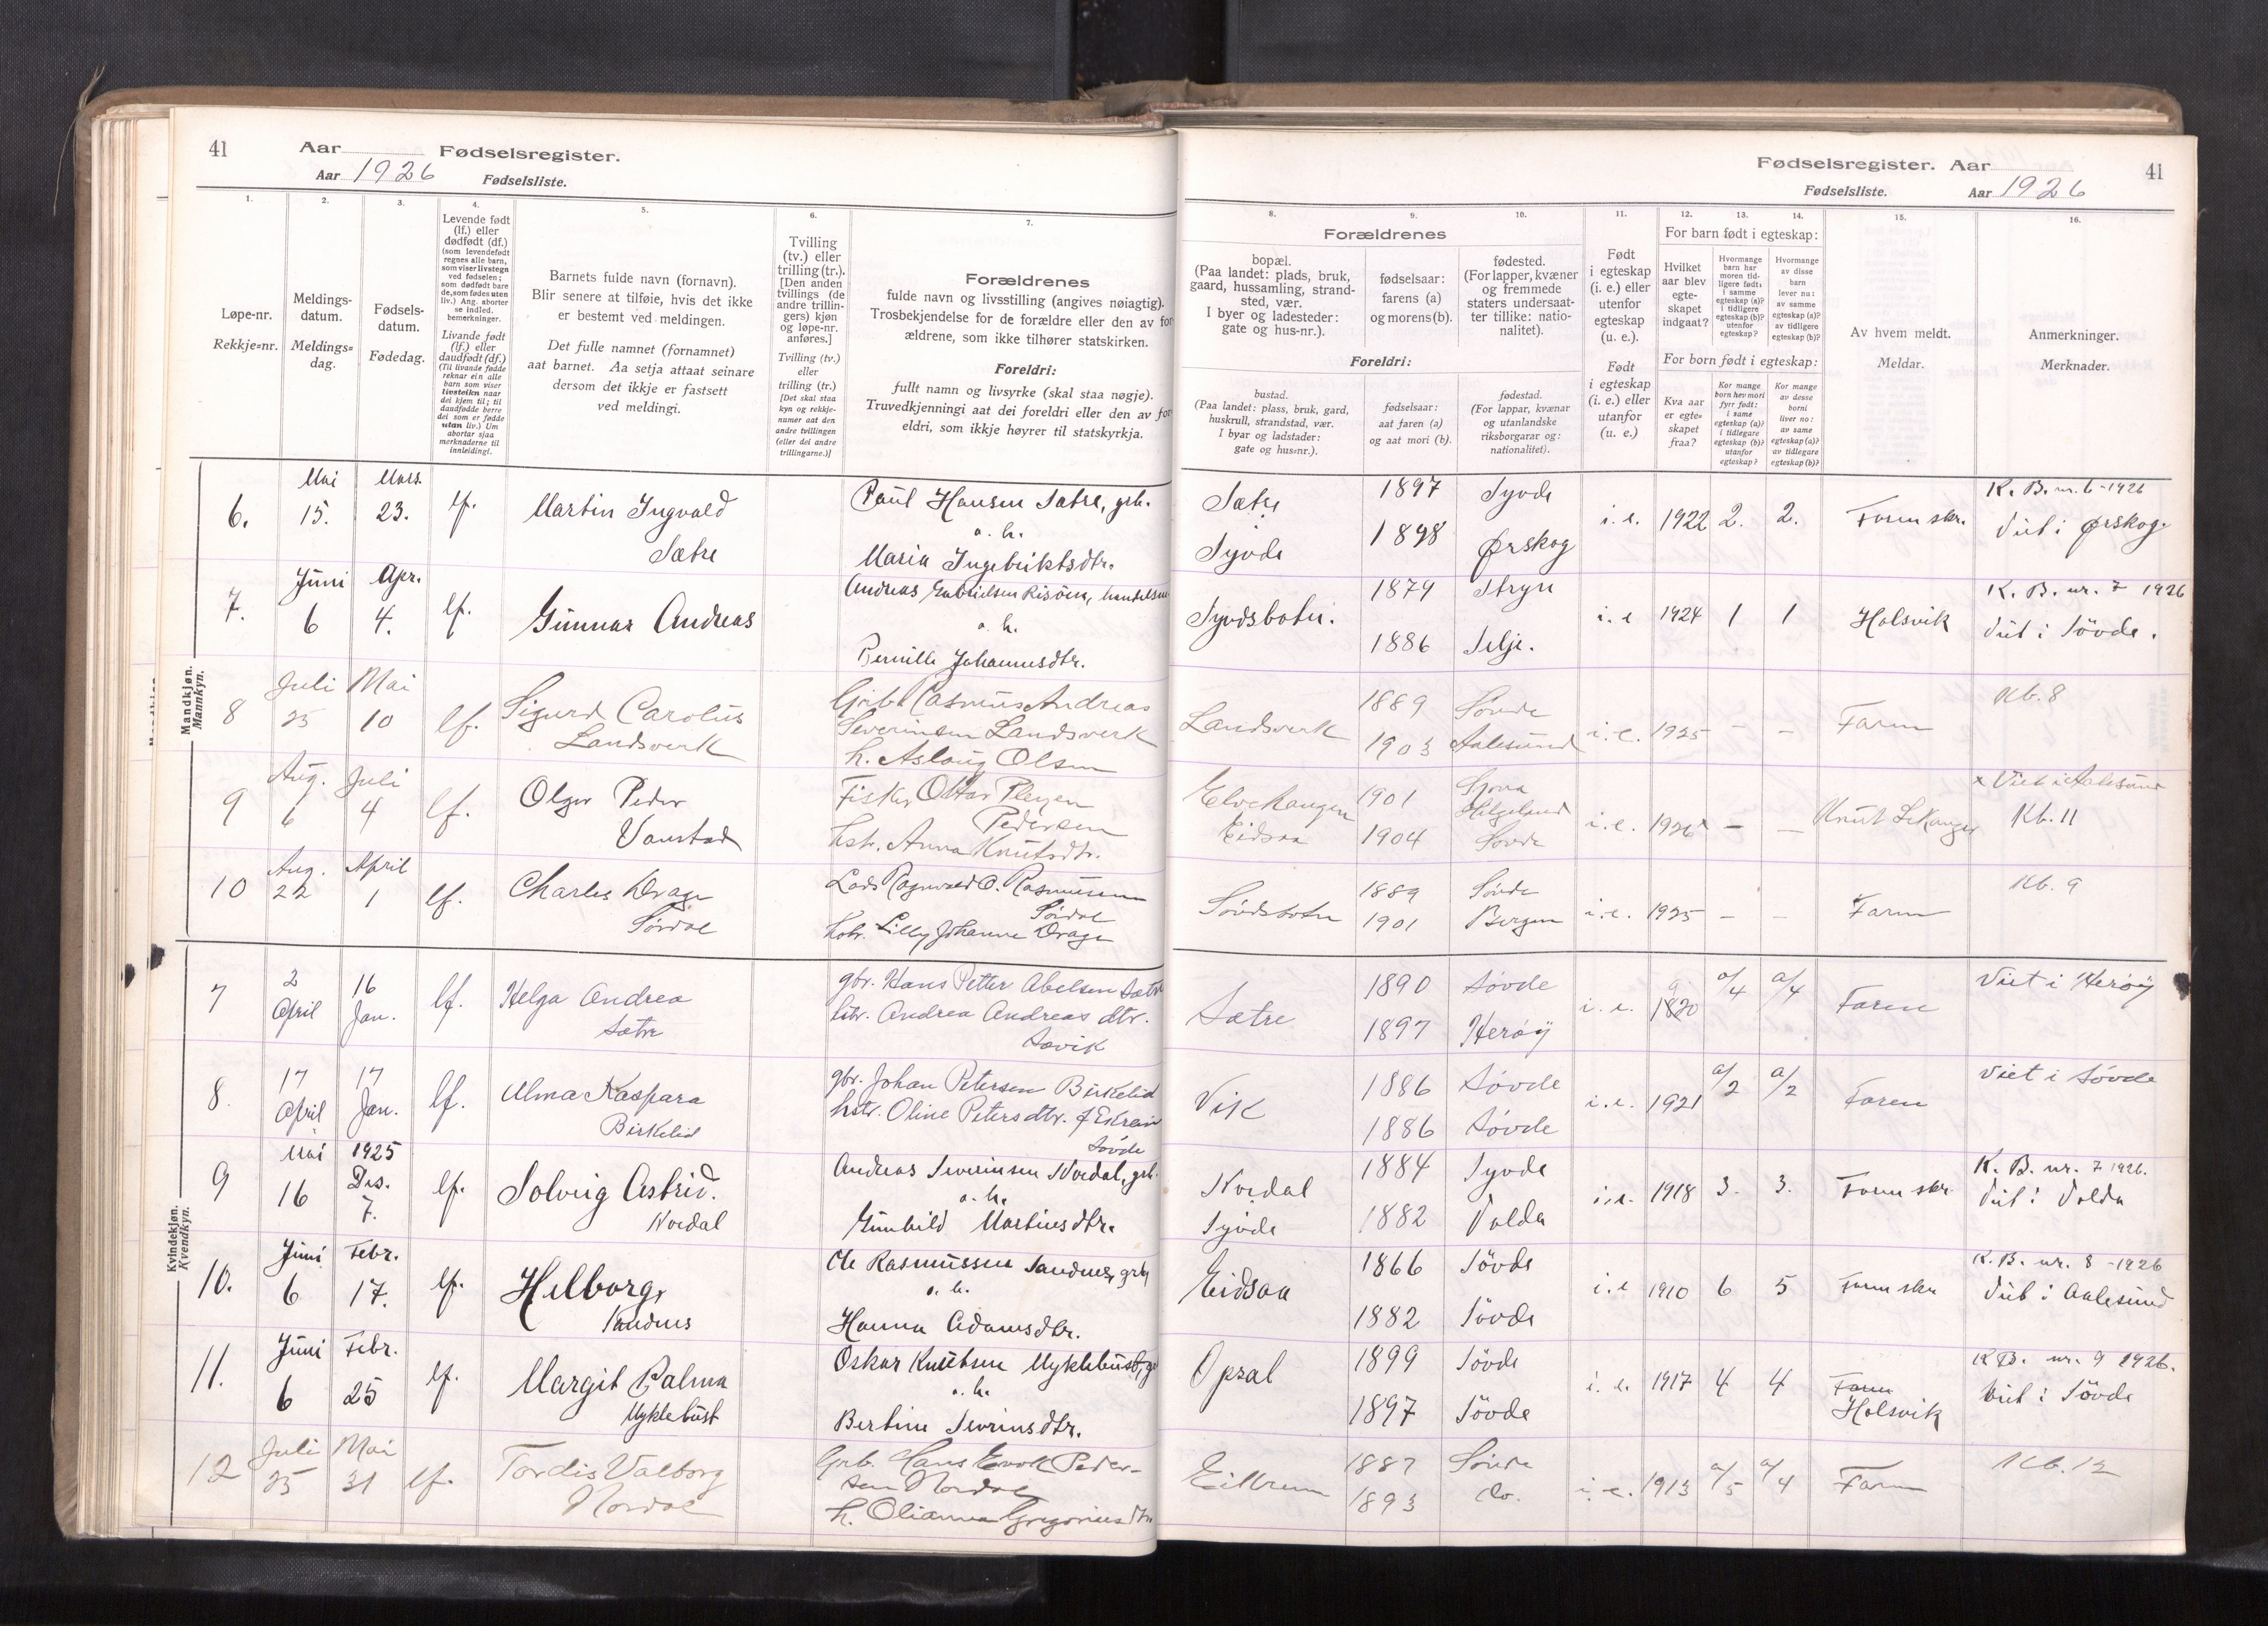 41
Aar
Fødselsregister.
Aar 1926 Fødselsliste.
1.
2.
3.
4.
5.
6.
7.
Løpe-nr.
Rekkje-nr.
Meldings-
datum.
Meldings-
dag.
Fødsels-
datum.
Fødedag.
Levende født
(lf.) eller
dødfødt (df.)
(som levendefødt
regnes alle barn,
som viser livstegn
ved fødselen;
som dødfødt bare
de, som fødes uten
liv.) Ang. aborter
se indled.
bemerkninger.
Livande født
(lf.) eller
daudfødt (df.)
(Til livande fødde
reknar ein alle
barn som viser
livsteikn naar
dei kjem til; til
daudfødde berre
dei som er fødde
utan liv.) Um
abortar sjaa
merknaderne til
innleidingi.
Barnets fulde navn (fornavn).
Blir senere at tilføie, hvis det ikke
er bestemt ved meldingen.
Det fulle namnet (fornamnet)
aat barnet. Aa setja attaat seinare
dersom det ikkje er fastsett
ved meldingi.
Tvilling
(tv.) eller
trilling (tr.).
[Den anden
tvillings (de
andre trillin-
gers) kjøn
og løpe-nr.
anføres.]
Tvilling (tv.)
eller
trilling (tr.)
[Det skal staa
kyn og rekkje-
numer aat den
andre tvillingen
(eller dei andre
trillingarne.)]
Forældrenes
fulde navn og livsstilling (angives nøiagtig).
Trosbekjendelse for de forældre eller den av for
ældrene, som ikke tilhører statskirken.
Foreldri:
fullt namn og livsyrke (skal staa nøgje).
Truvedkjenningi aat dei foreldri eller den av for
eldri, som ikkje høyrer til statskyrkja.
Mandkjøn.
Mannkyn.
6.
Mai
15.
Mars.
23.
lf.
Martin Ingvald
Sætre
Paul Hansen Sætre, grb.
o. h.
Maria Ingebriktsdtr.
7.
Juni
6
Apr.
4.
lf.
Gunnar Andreas
Andreas Gabrielsen Risöen, handelsm
o. h.
Pernille Johannesdtr.
8
Juli
25
Mai
10
lf.
Sigurd Carolus
Landsverk
Grbr. Rasmus Andreas
Severinsen Landsverk
h. Aslaug Olsen
9
Aug.
6
Juli
4
lf.
Olger Peder
Vanstad
Fisker Ottar
Pedersen
hstr. Anna Knutsdtr.
10
Aug.
22
April
1
lf.
Charles Drage
Sördal
Lods Ragnvald O. Rasmussen
Sördal
hstr. Lilly Johanne Drage
Kvindekjøn.
Kvendkyn.
7
2
April
16
Jan.
lf.
Helga Andrea
Sætre
gbr. Hans Petter Abelsen Sætre
hstr. Andrea Andreas dtr.
Sævik
8.
17
April
17
Jan.
lf.
Alma Kaspara
Birkelid
gbr. Johan Petersen Birkelid
hstr. Oline Petersdtr. f Ekrem
Søvde
9
Mai
16
1925
Des.
7.
lf.
Solveig Astrid.
Nordal
Andreas Severinsen Nordal, grb.
o. h.
Gunhild Martinsdtr.
10.
Juni
6
Febr.
17.
lf.
Helborg,
Sandnes
Ole Rasmussen Sandnes, grb,
o. h.
Hanna Adamsdtr.
11.
Juni
6
Febr.
25
lf.
Margit Palma
Myklebust
Oskar Knutsen Myklebust, g
o. h.
Bertine Severinsdtr.
12
Juli
25
Mai
31
lf.
Tordis Valborg
Nordal
Grb. Hans Enok Peder-
sen Nordal
h. Olianna Gregoriusdtr
Fødselsregister. Aar
41
Fødselsliste. Aar 1926
8.
9.
10.
11.
12.
13.
14.
15.
16.
Forældrenes
bopæl.
(Paa landet: plads, bruk,
gaard, hussamling, strand-
sted, vær.
I byer og ladesteder:
gate og hus-nr.).
fødselsaar:
farens (a)
og morens (b).
fødested.
(For lapper, kvæner
og fremmede
staters undersaat-
ter tillike: natio-
nalitet).
Foreldri:
bustad.
(Paa landet: plass, bruk, gard,
huskrull, strandstad, vær.
I byar og ladstader:
gate og hus-nr.).
fødselsaar:
aat faren (a)
og aat mori (b).
fødestad.
(For lappar, kvænar
og utanlandske
riksborgarar og:
nationalitet).
Født
i egteskap
(i. e.) eller
utenfor
egteskap
(u. e.).
Født
i egteskap
(i. e.) eller
utanfor
(u. e.)
For barn født i egteskap:
Hvilket
aar blev
egte-
skapet
indgaat?
Hvormange
barn har
moren tid-
ligere født:
i samme
egteskap (a)?
i tidligere
egteskap (b)?
utenfor
egteskap?
Hvormange
av disse
barn
lever nu:
av samme
egteskap (a)?
av tidligere
egteskap (b)?
For born født i egteskap:
Kva aar
er egte-
skapet
fraa?
Kor mange
born hev mori
fyrr født:
i same
egteskap (a)?
i tidlegare
egteskap (b)?
utanfor
egteskap?
Kor mange
av desse
borni
liver no:
av same
egteskap (a)?
av tidlegare
egteskap (b)?
Av hvem meldt.
Meldar.
Anmerkninger.
Merknader.
Sætre
Syvde
1897
1898
Syvde
Ørskog
i. e.
1922
2.
2.
Faren skr.
K. B. nr. 6-1926
Viet i Ørskog.
Syvdsbotn.
1879
1886
Stryn
Selje.
i. e
1924
1
1
Holsvik
K. B. nr. 7 1926
Viet i Sövde.
Landsverk
1889
1903
Sövde
Aalesund
i. e.
1925
-
-
Faren
Kb. 8
Elvehaugen
Eidsaa
1901
1904
Helgeland
Sövde
i. e.
1926
-
-
Knut Lekanger
x Viet i Aalesund
Kb. 11
Sövdsbotn
1889
1901
Sövde
Bergen
i. e.
1925
-
-
Faren
Kb. 9
Sætre
1890
1897
Søvde
Herøy
i. e.
9
1820
a/4
a/4
Faren
Viet i Herøy
Vik
1886
1886
Søvde
Søvde
i. e.
1921
a/2
a/2
Faren
Viet i Søvde
Nordal
Syvde
1884
1882
Syvde
Volda
i. e.
1918
3.
3.
Faren skr.
K. B. nr. 7 1926.
Viet i Volda
Eidsaa
1866
1882
Sövde
Sövde
i. e
1910
6
5
Faren skr
K. B. nr. 8 -1926
Viet i Aalesund
Opsal
1899
1897
Sövde
Sövde
i. e.
1917
4
4
Faren
Holsvik
K B. nr. 9 1926.
Viet i Sövde
Eilkrem
1887
1893
Sövde
do.
i. e.
1913
a/5
a/4
Faren
Kb. 12